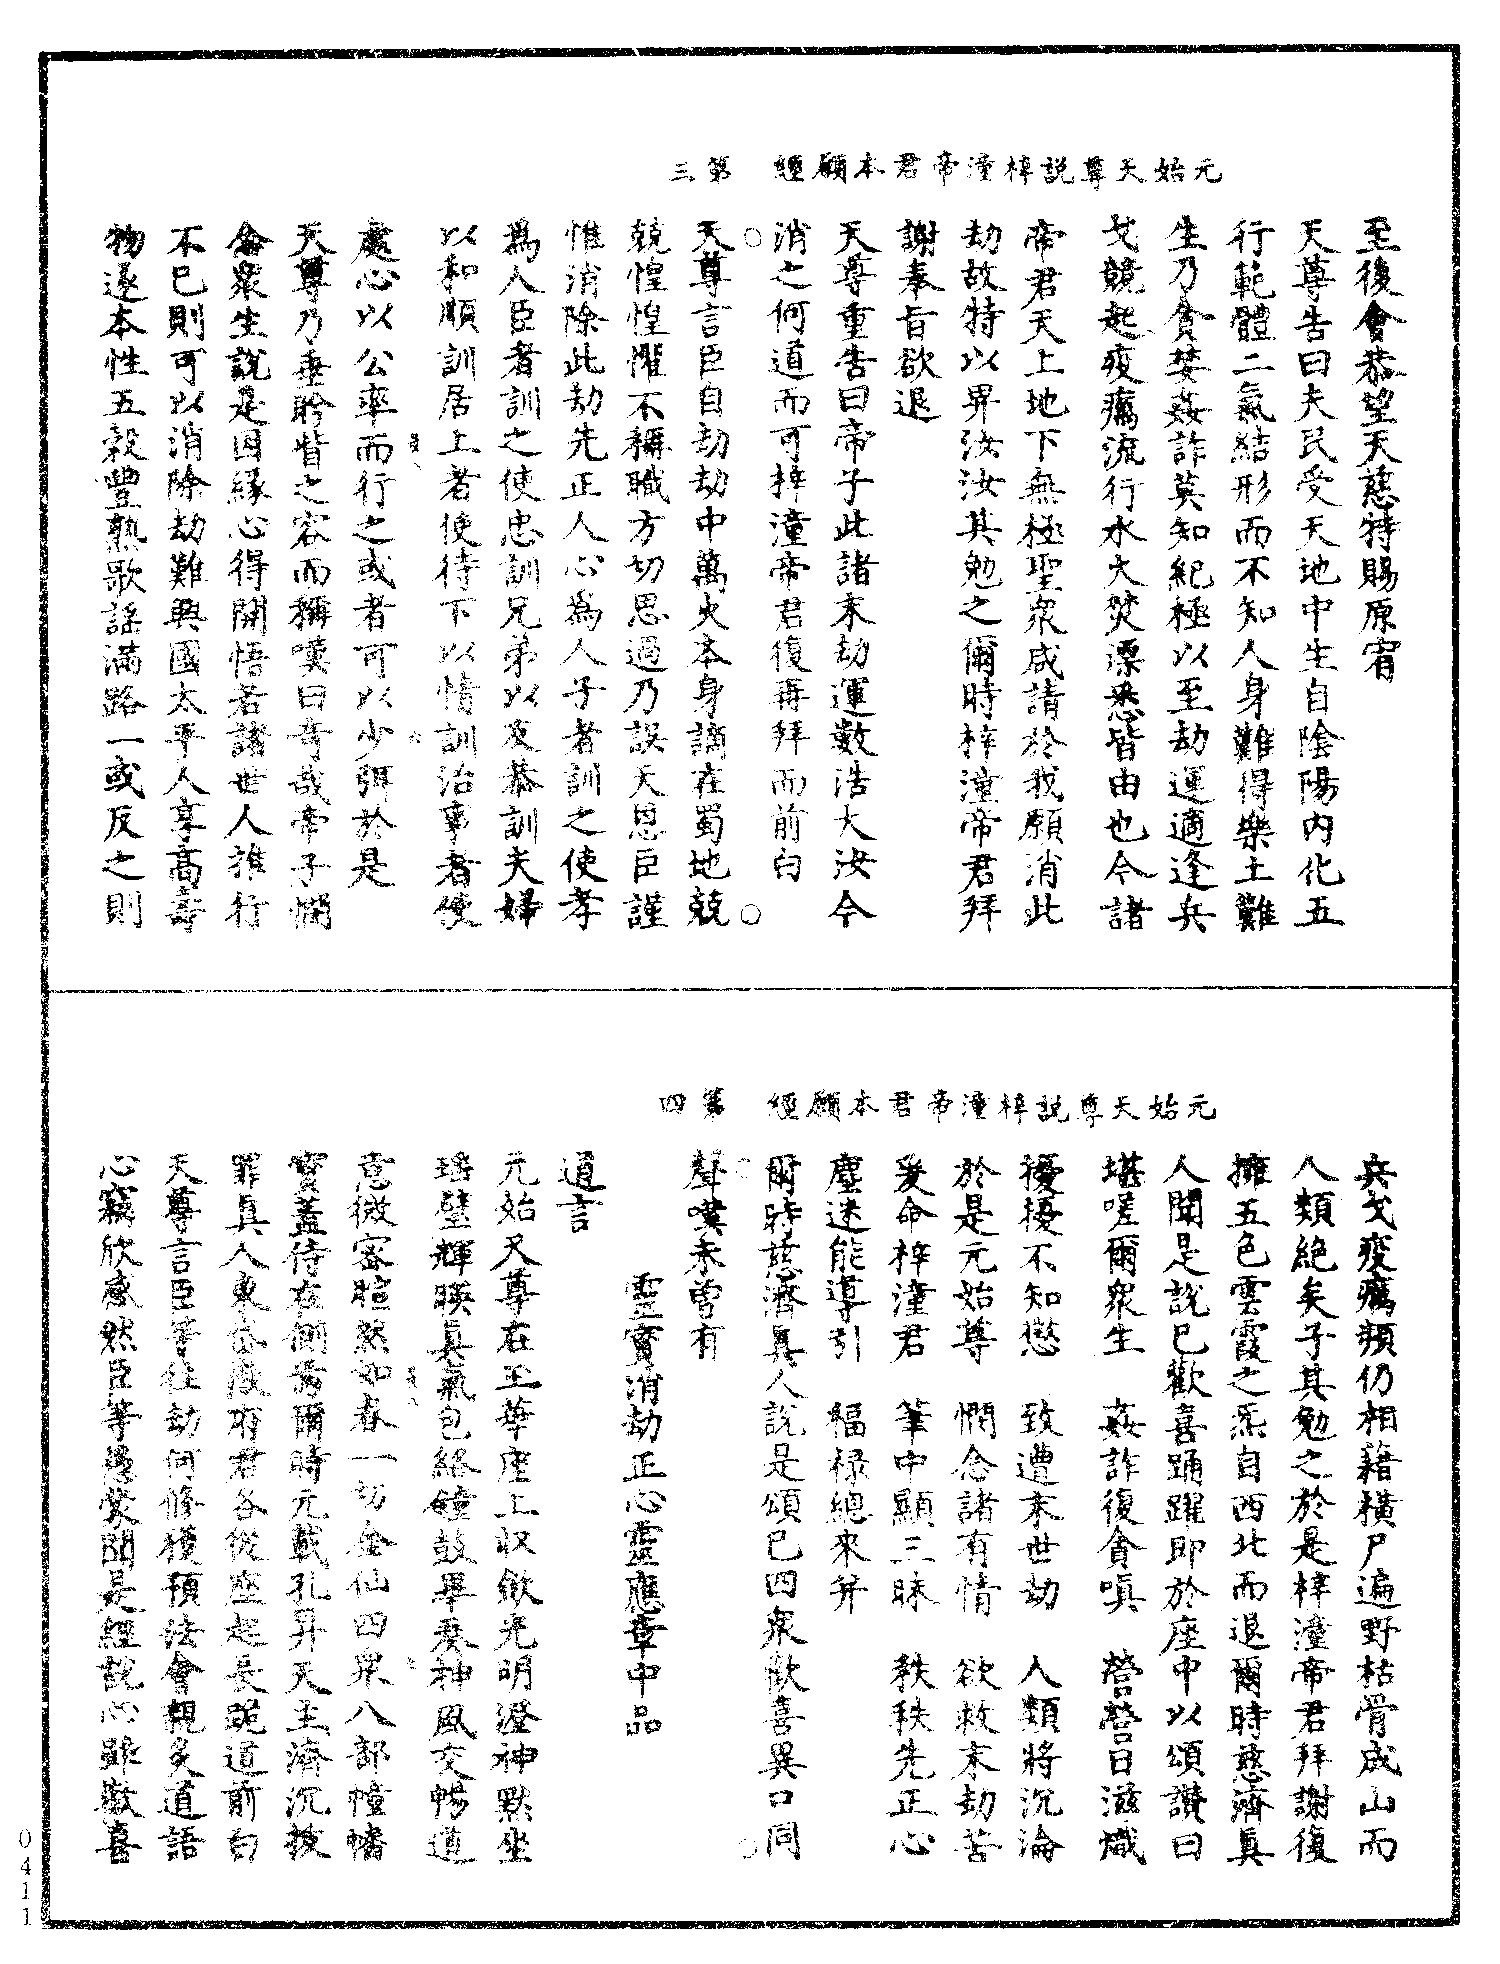 元始天尊說梓潼帝君本願經　第三
至後會恭望天慈特賜原宥
天尊告曰夫民受天地中生自陰陽内化五
行範體二氣結形而不知人身難得樂土難
生乃貪婪姦詐莫知紀極以至劫運適逢兵
戈競起疫癘流行水火焚漂悉皆由也今諸
帝君天上地下無極聖衆咸請於我願消此
劫故特以畀汝汝其勉之爾時梓潼帝君拜
謝奉旨欲退
天尊重告曰帝子此諸末劫運數浩大汝今
消之何道而可梓潼帝君復再拜而前白
天尊言臣自劫劫中萬火本身謫在蜀地兢
兢惶惶懼不稱職方切思過乃誤天恩臣謹
惟消除此劫先正人心為人子者訓之使孝
為人臣者訓之使忠訓兄弟以友恭訓夫婦
以和順訓居上者使待下以情訓治事者使
處心以公率而行之或者可以少弭於是
天尊乃垂盻眥之容而稱嘆曰奇哉帝子憫
念衆生說是因緣心得開悟若諸世人推行
不已則可以消除劫難興國太平人享高壽
物遂本性五穀豐熟歌謡滿路一或反之則
元始天尊說梓潼帝君本願經　第四
兵戈疫癘頻仍相藉横尸遍野枯骨成山而
人類絶矣子其勉之於是梓潼帝君拜謝復
擁五色雲霞之炁自西北而退爾時慈濟真
人聞是說已歡喜踊躍即於座中以頌讚曰
堪嗟爾衆生　姦詐復貪嗔　營營日滋熾
擾擾不知愆　致遭末世劫　人類將沉淪
於是元始尊　憫念諸有情　欲救末劫苦
爰命梓潼君　筆中顯三昧　秩秩先正心
塵迷能導引　福祿總來并
爾時慈濟真人說是頌已四衆歡喜異口同
聲嘆未曾有
靈寳消劫正心靈應章中品
道言
元始天尊在玉華座上収斂光明澄神默坐
瑶璧輝暎真氣包絡鐘鼓畢奏神風交暢道
意微密暄然如春一切金仙四衆八部幢幡
寳蓋侍在側焉爾時元載孔昇天主濟沉拔
罪真人東岱啟府君各從座起長跪道前白
天尊言臣等往劫何修獲預法會親炙道語
心竊欣感然臣等愚蒙聞是經說心雖歡喜
0411